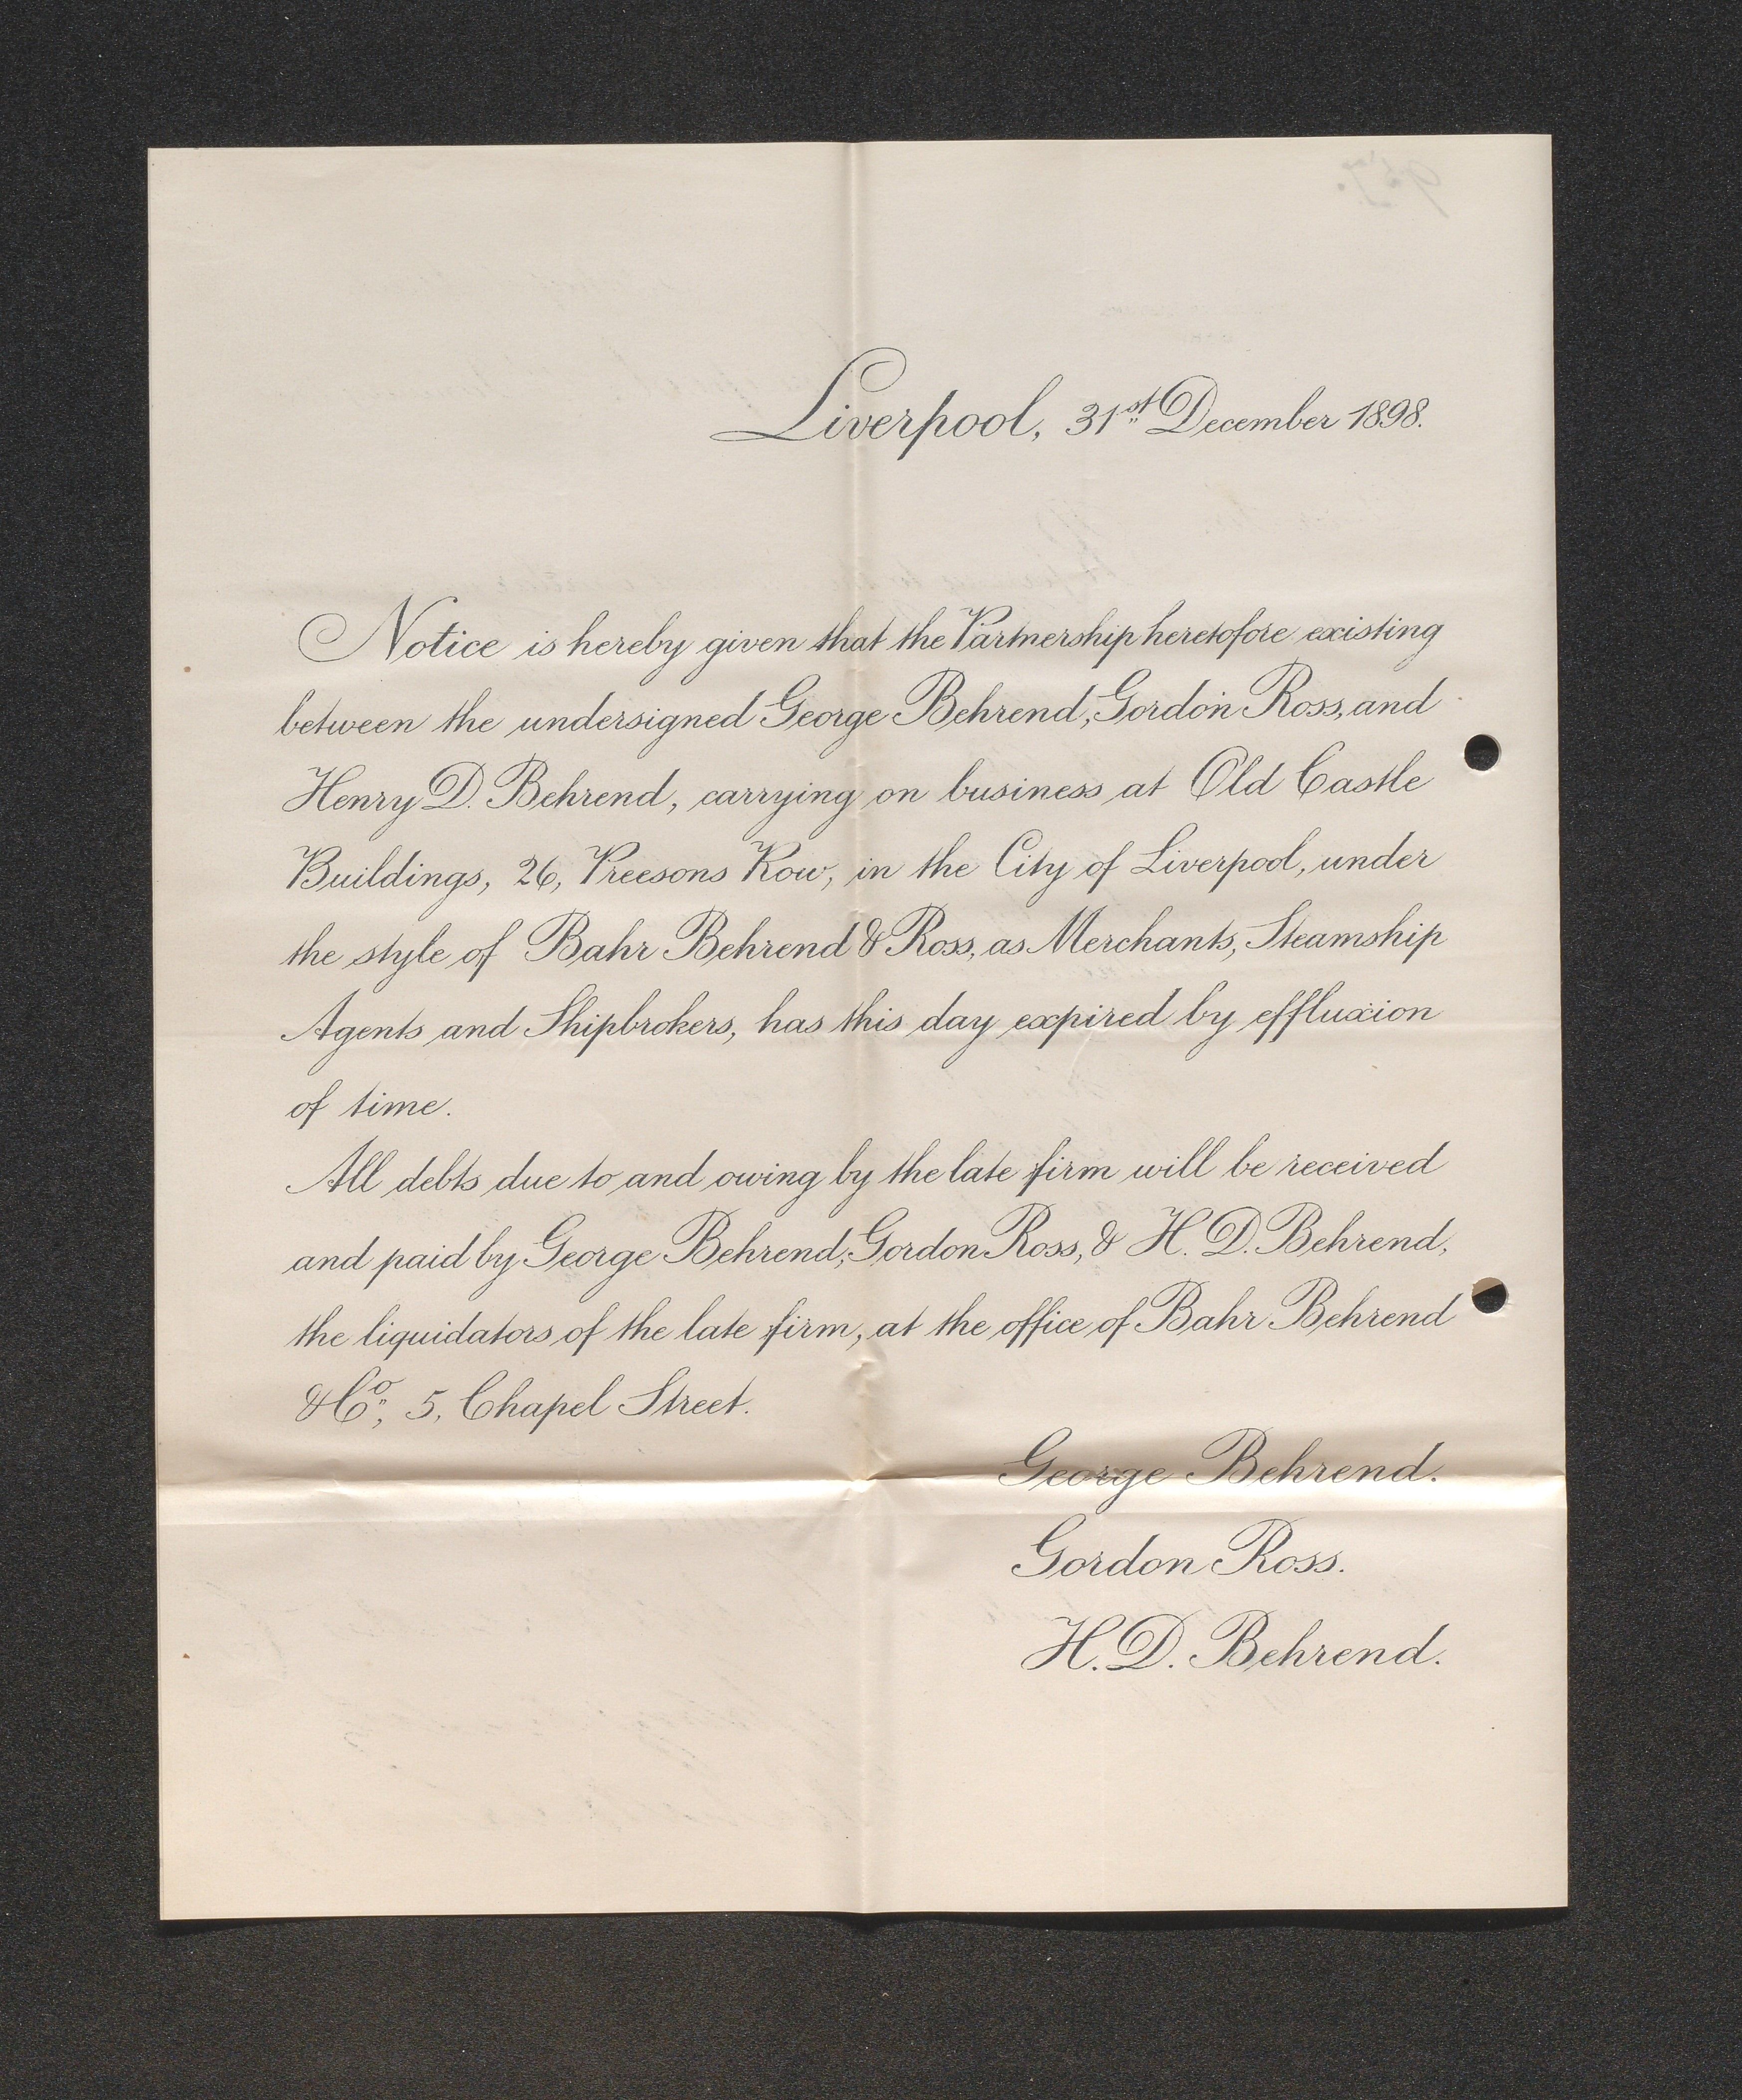 Liverpool, 31st December 1898.
Notice is hereby given that the Partnership heretofore existing
between the undersigned George Behrend, Gordon Ross, and
Henry D. Behrend, carrying on business at Old Castle
Buildings, 26, Preesons Row, in the City of Liverpool, under
the style of Bahr Behrend & Ross, as Merchants, Steamship
Agents and Shipbrokers, has this day expired by effluxion
of time.
All debts due to and owing by the late firm will be received
and paid by George Behrend, Gordon Ross, & H. D. Behrend,
the liquidators of the late firm, at the office of Bahr Behrend
& Co., 5, Chapel Street.
George Behrend.
Gordon Ross.
H. D. Behrend.